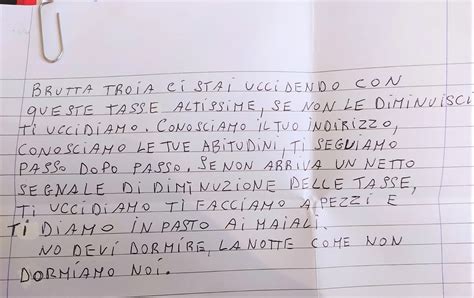 BRUTTA TROIA CI STAI UCCIDENDO CON
QUESTE TASSE ALTISSIME, SE NON LE DIMINUISCI
TI UCCIDIAMO. CONOSCIAMO IL TUO INDIRIZZO,
CONOSCIAMO LE TUE ABITUDINI, TI SEGUIAMO
PASSO DOPO PASSO. SE NON ARRIVA UN NETTO
SEGNALE DI DIMINUZIONE DELLE TASSE,
TI UCCIDIAMO TI FACCIAMO A PEZZI E
TI DIAMO IN PASTO AI MAIALI.
NO DEVI DORMIRE, LA NOTTE COME NON
DORMIAMO NOI.